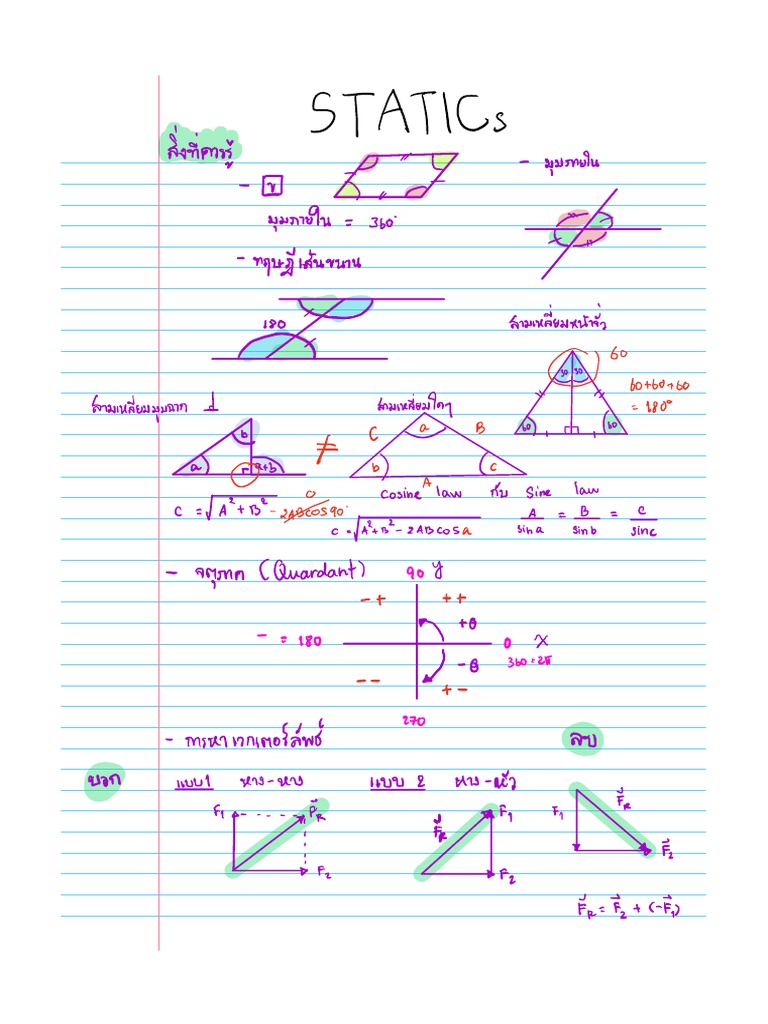 STATICs
สิ่งที่ควรรู้
-
- มุมภายใน
มุมภายใน = 360°
- ทฤษฎีเส้นขนาน
180
สามเหลี่ยมหน้าจั่ว
60
30 30
60+60+60
= 180°
60 60
สามเหลี่ยมมุมฉาก
สามเหลี่ยมใดๆ
b
a
a+b
≠
C a B
b c
A
C = √A²+B² - 2ABCOS90° 0
Cosine law กับ Sine law
C = √A²+B² - 2ABCOSa
A/sina = B/sinb = C/sinc
- จตุภาค (Quardant)
90 y
- + + +
+θ
- = 180
0 X
360 = 2π
-θ
- - + -
270
- การหาเวกเตอร์ลัพธ์
ลบ
บวก
แบบ 1 หาง-หาง
แบบ 2 หาง-หัว
F₁ F⃗R
F₂
F⃗R F₁
F₂
F₁ F⃗R
F⃗₂
F⃗R = F⃗₂ + (-F⃗₁)